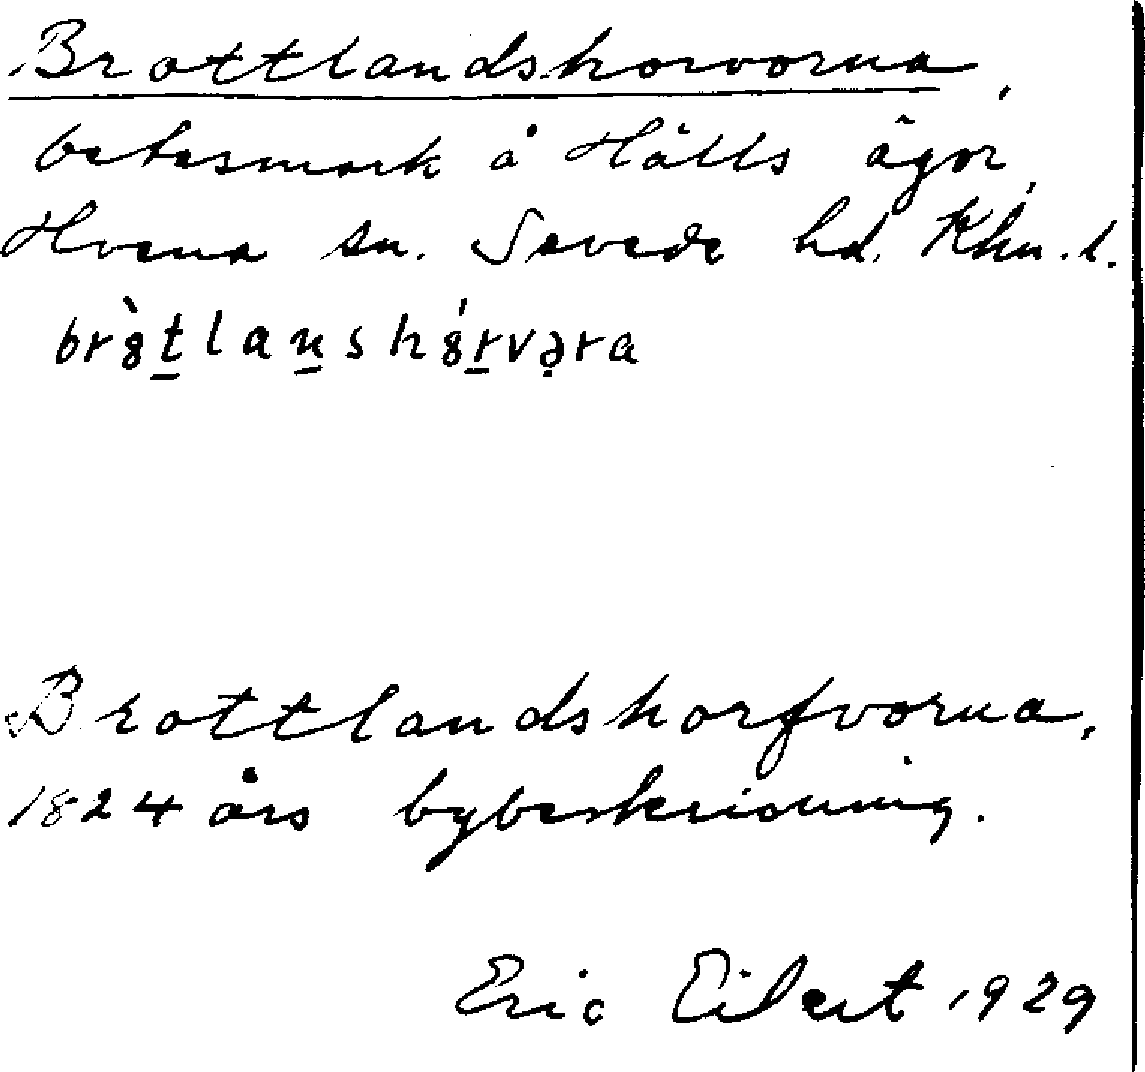 Brottlandshorvorna,
betesmark å Hälls ägor,
Hvena sn. Sevede hd. Khn. l.
br8̀t̲lan̲sh8́r̲və̣ra
Brottlandshorfvorna,
1824 års bybeskrivning.
Eric Eilert 1929